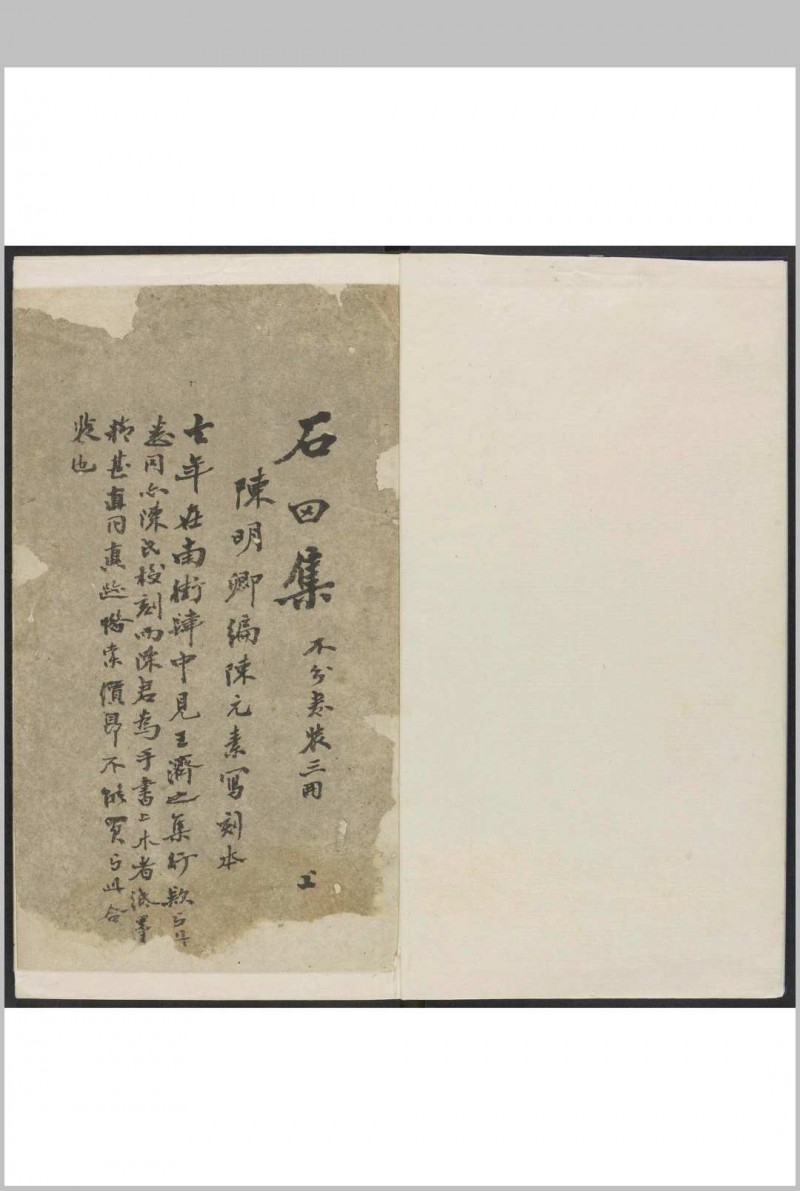 石田集 不分卷裝三册 上
陳明卿編陳元素寫刻本
去年在南街肆中見王濟之集行款与此
悉同亦陳氏校刻而陳君為手書上木者紙墨
精甚直同真跡惜索價昂不能買与此合
裝也